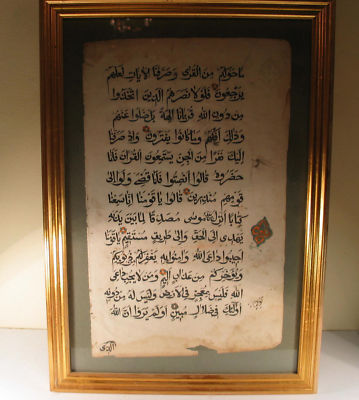 ما حولكم من القرى وصرفنا الآيات لعلهم
يرجعون فلولا نصرهم الذين اتخذوا
من دون الله قربانا آلهة بل ضلوا عنهم
وذلك إفكهم وما كانوا يفترون وإذ صرفنا
إليك نفرا من الجن يستمعون القرآن فلما
حضروه قالوا أنصتوا فلما قضي ولوا إلى
قومهم منذرين قالوا يا قومنا إنا سمعنا
كتابا أنزل موسى مصدقا لما بين يديه
يهدي إلى الحق وإلى طريق مستقيم يا قومنا
أجيبوا داعي الله وآمنوا به يغفر لكم ذنوبكم
من عذاب أليم ومن لا يجب داعي
الله فليس بمعجز في الأرض وليس له من دونه
أولئك في ضلال مبين أولم يروا أن الله
الذي